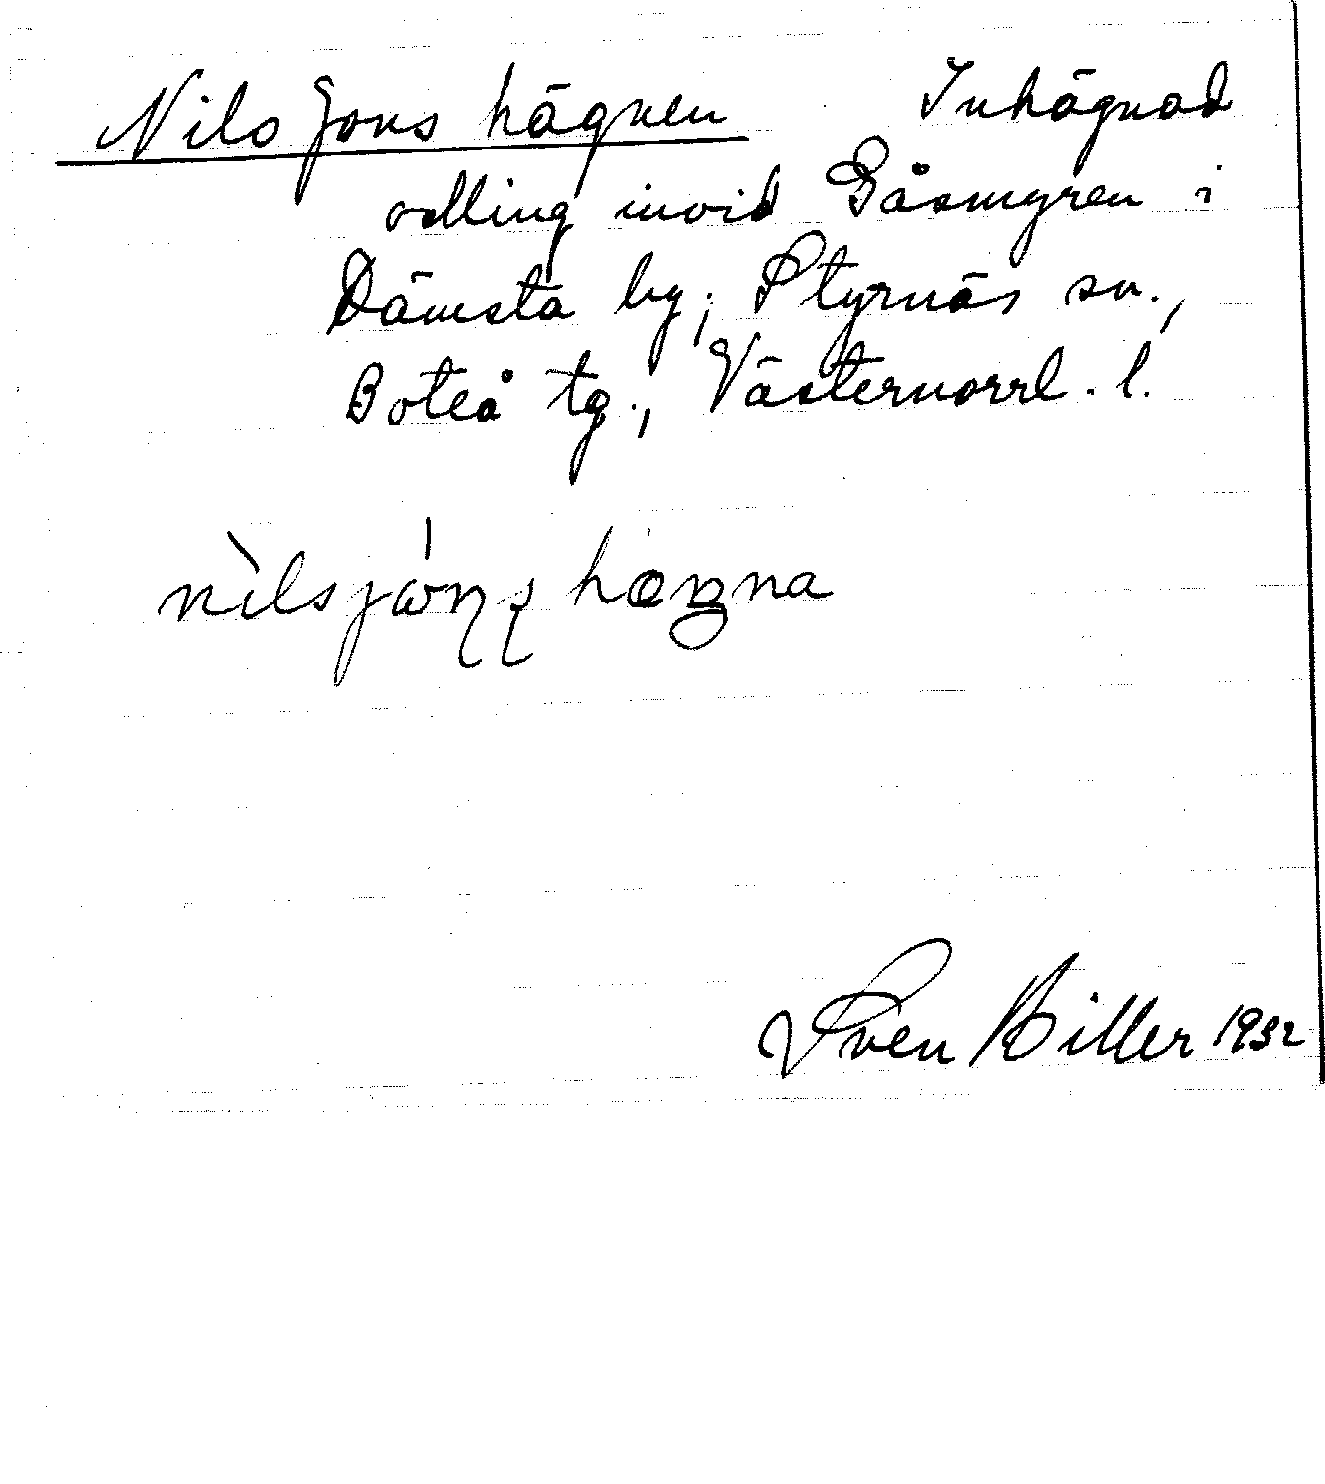 Nils Jons hägnen Inhägnad
odling invid Gåsmyren i
Dämsta by, Styrnäs sn.,
Boteå tg., Västernorrl. l.
Sven Hiller 1932